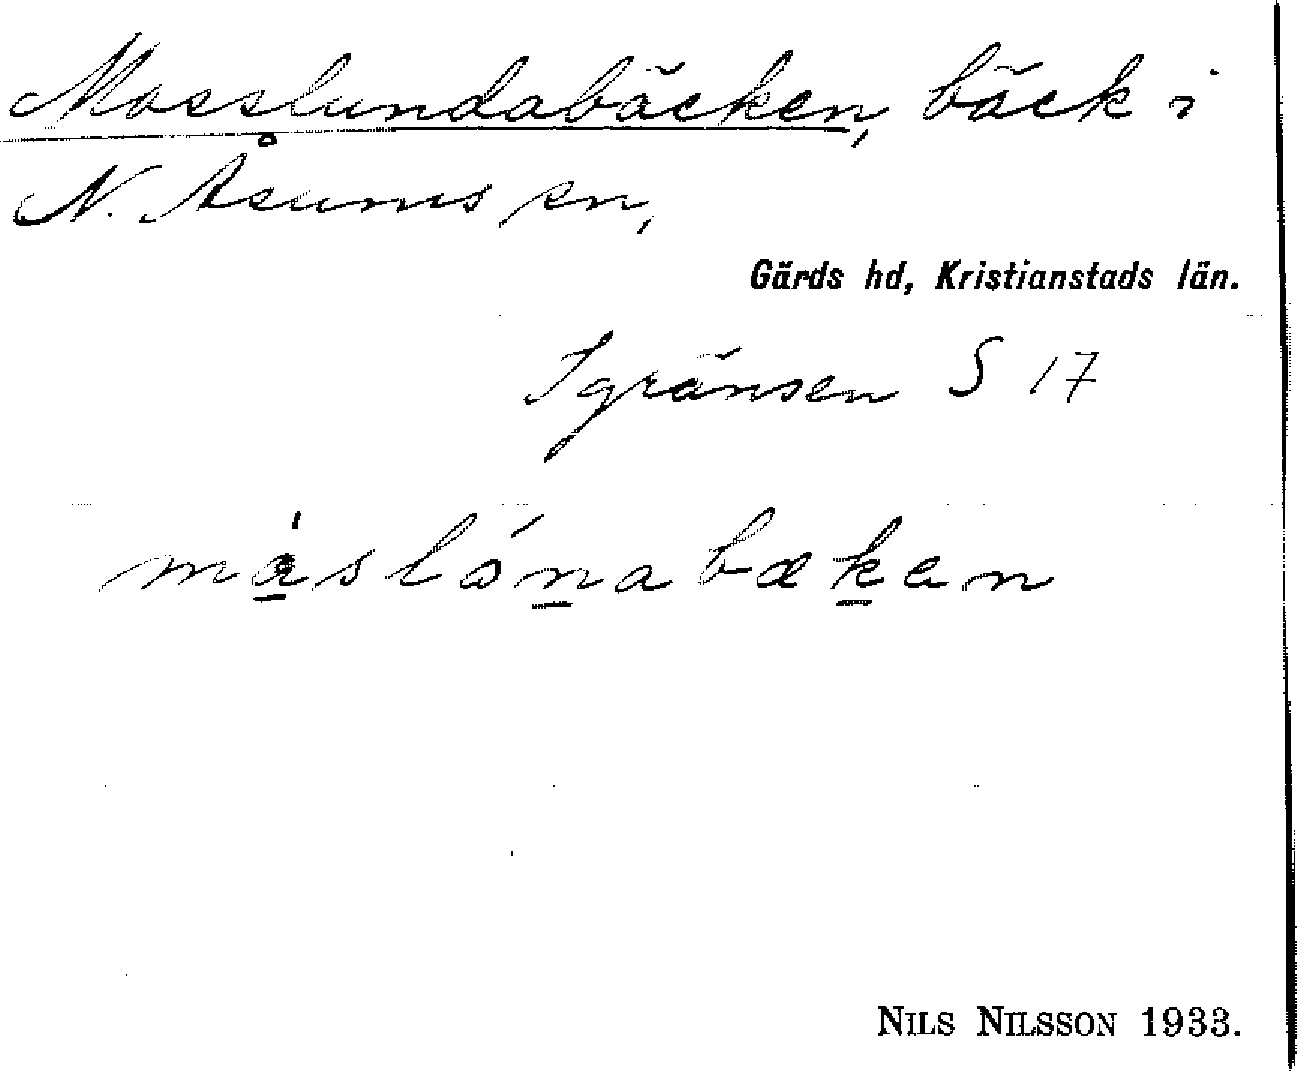 Mosslundabäcken, bäck i
N. Åsums sn,
Gärds hd, Kristianstads län.
I gränsen S 17
måslónabæken
NILS NILSSON 1933.